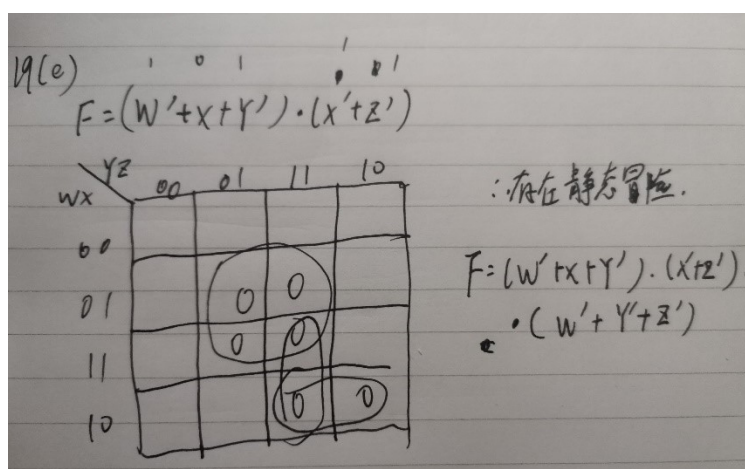 19(e)
1 0 1 1 1
F=(W'+X+Y')·(X'+Z')
YZ
WX
00 01 11 10
00
01 0 0
11 0 0
10 0 0
∴存在静态冒险.
F=(W'+X+Y')·(X'+Z')
·(W'+Y'+Z')